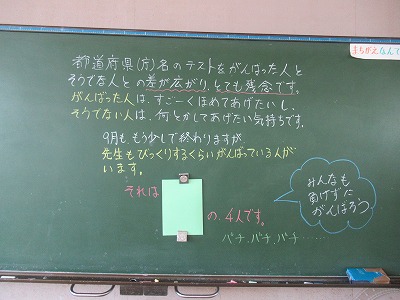 都道府県(庁)名のテストをがんばった人と
そうでな人との差が広がり、とても残念です。
がんばった人は、すごーくほめてあげたいし、
そうでない人は、何とかしてあげたい気持ちです。
9月も、もう少しで終わりますが、
先生もびっくりするくらいがんばっている人が
います。
それは
の、4人です。
パチ、パチ、パチ……
みんなも
負けずに
がんばろう
まちがえなんて